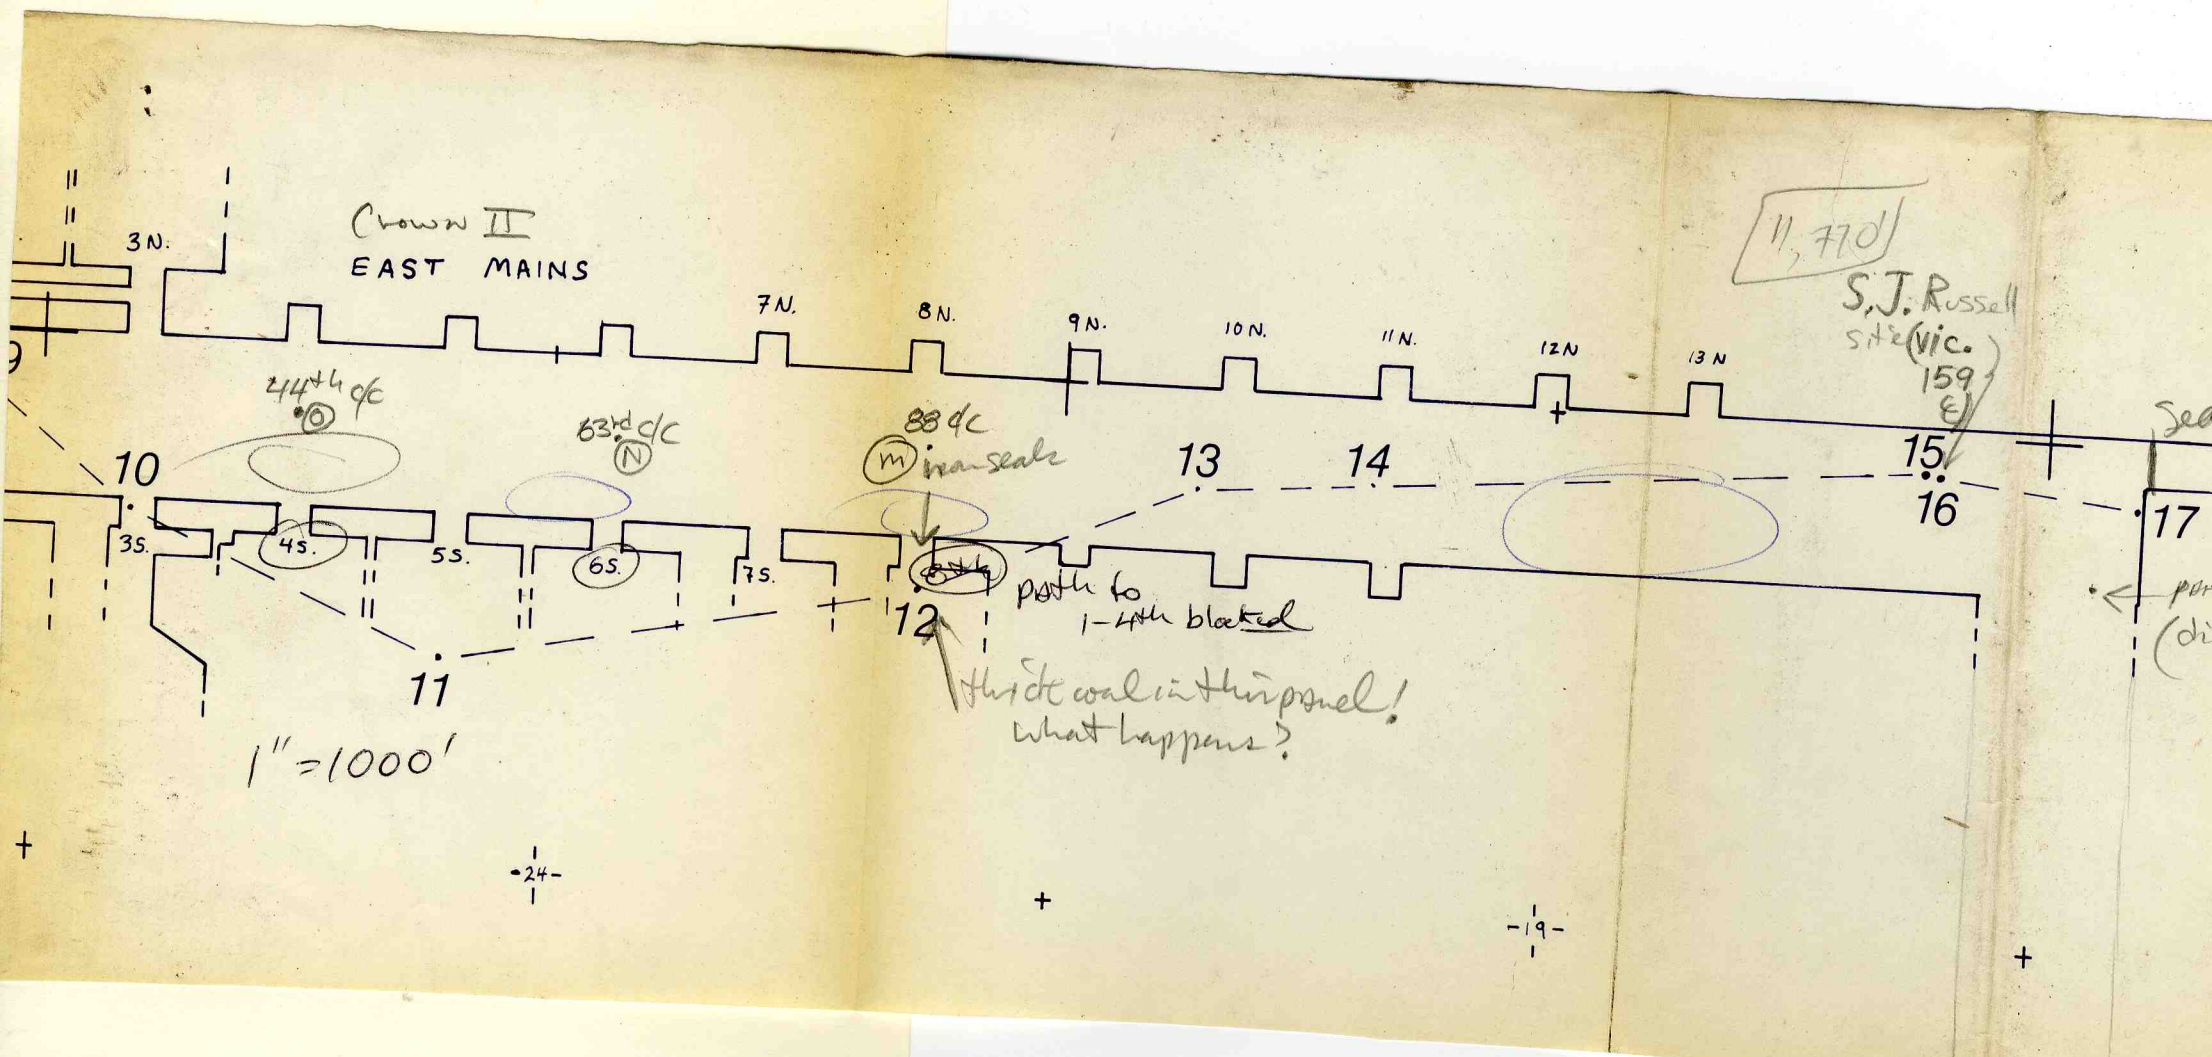 3 N.
Crown II
EAST MAINS
7 N.
8 N.
9 N.
10 N.
11 N.
12 N
13 N
11,770'
S.J. Russell
site (vic.
159
E)
9
44th c/c
O
63rd c/c
N
88 c/c
m
near seals
Sea
10
13
14
15
16
17
3S.
4S.
5S.
6S.
7S.
8th
path to
1-4th blocked
12
11
thick coal in this panel!
what happens?
(di
1" = 1000'
24
19